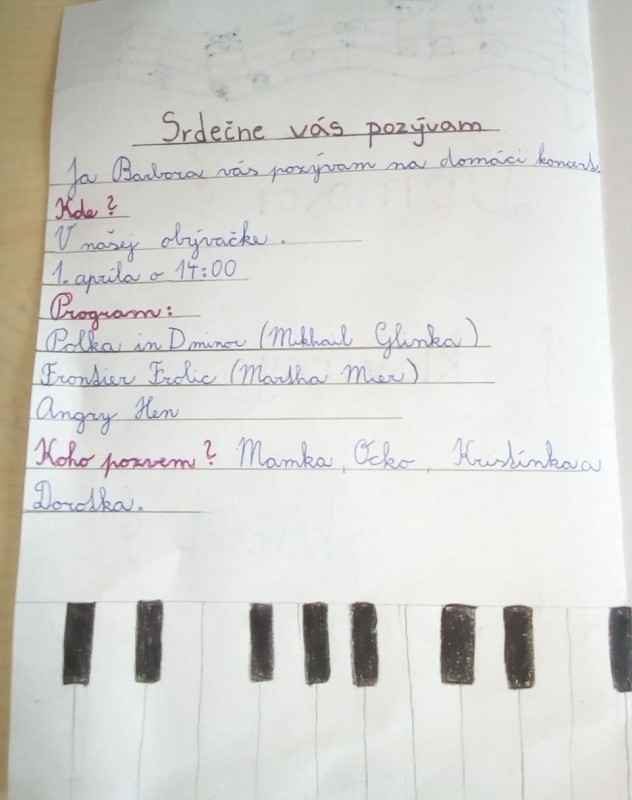 Srdečne vás pozývam
Ja Barbora vás pozývam na domáci koncert.
Kde?
V našej obývačke.
1. apríla o 14:00
Program:
Polka in D minor (Mikhail Glinka)
Frontier Frolic (Martha Mier)
Angry Hen
Koho pozvem? Mamka, Ocko, Kristínka a
Dorotka.